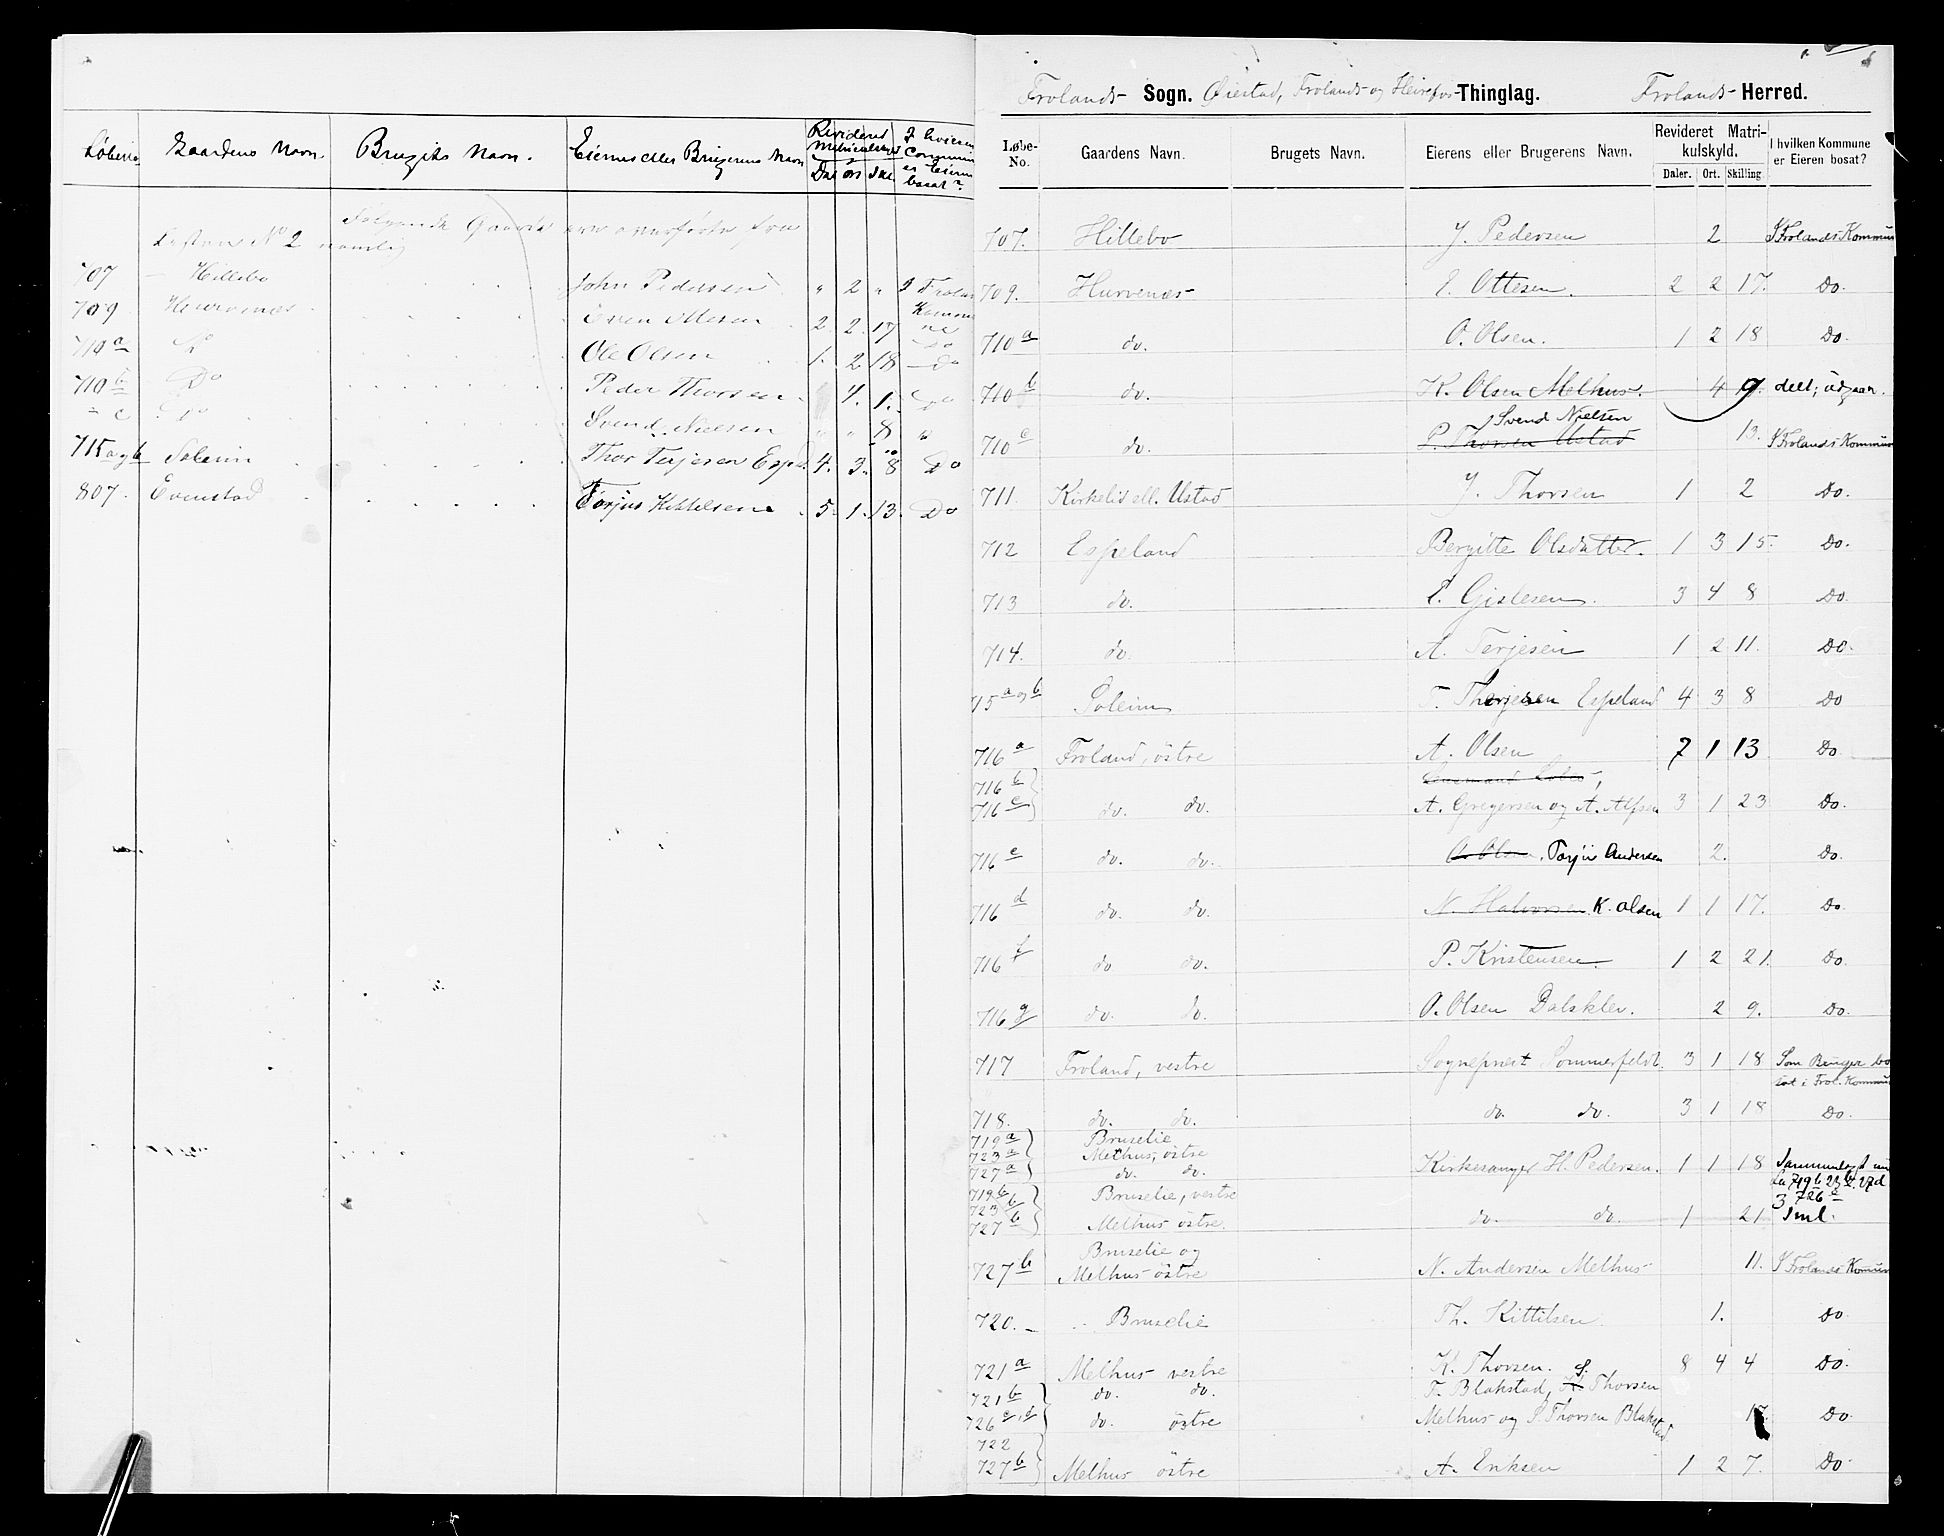 Løbeno Gaardens Navn. Brugets Navn. Eierens eller Brugerens Navn Revideret Matriculskyld Dal ort I hvilken Commune er Eieren bosat?
Følgende Gaarde ere overførte fra
Listen No 2 nemlig
707 — Hillebo John Pedersen " 2 " I Frolands
709 Hurvenes Kommune
2. 2. 17
710 a Do Ole Olsen 1. 2 18 Do
710 b Do Peder Thorsen 4. 1. Do
" c Do Svend Nielsen " " 8 "
715 a og b Soleim Thor Terjesen Espel. 4. 3. 8 Do
807. Evenstad Torjus Kittelsen 5. 1. 13. Do
Frolands Sogn. Øiestad, Frolands og Heirefos Thinglag. Frolands Herred.
Løbe-No. Gaardens Navn. Brugets Navn. Eierens eller Brugerens Navn. Revideret Matrikulskyld. Daler. Ort. Skilling I hvilken Kommune er Eieren bosat?
707. Hillebo J. Pedersen 2 I Frolands Kommune
709. Hurvenes E. Ottesen. 2 2 17. Do
710 a do. O. Olsen. 1 2 18 Do.
710 b do. K. Olsen Melhus. 4 9 delt; udgaar.
Svend Nielsen
710 c do. P. Thorsen Ustad 13. I Frolands Kommune
711. Kirkelid ell. Ustad J. Thorsen 1 2 Do.
712 Espeland Bergitte Olsdatter. 1 3 15. Do.
713 do. E. Gislesen. 3 4 8 Do.
714. do. A. Terjesen 1 2 11. Do.
715 a og b Soleim T. Therjesen Espeland 4 3 8 Do
716 a Froland, östre A. Olsen 7 1 13 Do
716 b
716 c do. do. A. Gregersen og A. Alfsen 3 1 23 Do.
716 e do. do. O. Olsen, Torjus Andersen 2. Do.
716 d do. do. N. Halvorsen K. Olsen 1 1 17. Do
716 f do do. P. Kristensen. 1 2 21. Do.
716 g do. do. O. Olsen Dalsklev. 2 9. Do.
717 Froland, vestre Sognepræst Sommerfeldt. 3 1 18 Som Bruger bo-
sat i Frol. Kommune
718. do. do. do. do. 3 1 18 Do.
719 a Bruselie
723 a Melhus, östre
727 a do. do. Kirkesanger H. Pedersen. 1 1 18 Sammenlagt
719 b Bruselie, vestre
723 b 3 726 c
727 b Melhus östre. do. do. 1 21 Sml.
Bruselie og
727 b Melhus östre N. Andersen Melhus 11. I Frolands Komune
720. — Bruselie Th. Kittilsen 1. Do
721 a Melhus vestre K. Thorsen. 8 4 4 Do.
721 b do. do. T. Blakstad, S. Thorsen
726 c, d do. östre Melhus og S. Thorsen Blakstad. 17. Do.
722
727 b Melhus östre A. Eriksen 1 2 7. Do.